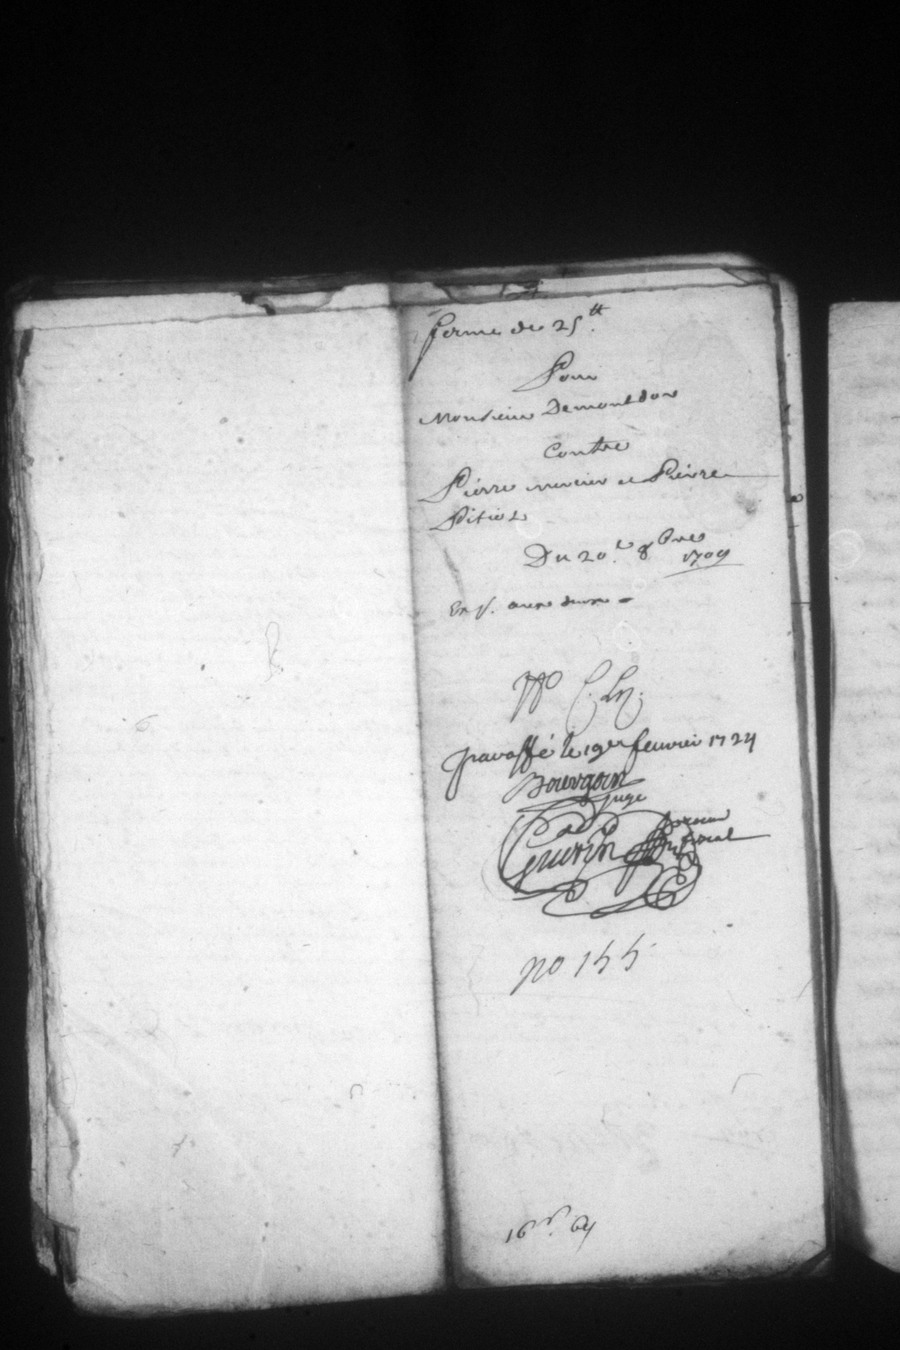 ferme de 25.tt
Pour
Monsieur Demontdor
Contre
Pierre mercier et Pierre
Pitiot
Du 20.e 8bre
1709
paraffé le 19er feuvrier 1724
Bourgoin
juge
Guerin procureur
fiscal
no 155